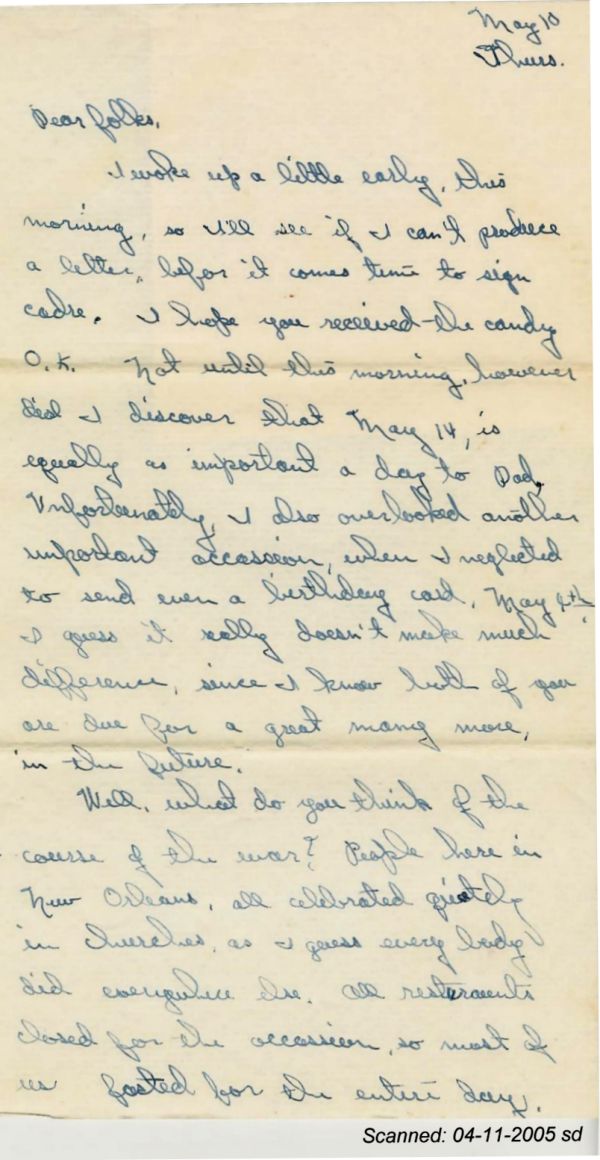 May 10
Thurs.
Dear folks,
I woke up a little early, this
morning, so I'll see if I can't produce
a letter, befor it comes time to sign
cadre. I hope you received the candy
O.K. Not until this morning, however
did I discover that May 14, is
equally as important a day to Dad.
Unfortunately, I also overlooked another
important occassion, when I neglected
to send even a birthday card, May
I guess it really doesn't make much
difference, since I know both of you
are due for a great many more,
in the future.
Well, what do you think of the
course of the war? People here in
New Orleans, all celebrated quietly
in churches, as I guess every body
did everywhere else. All resteraunts
closed for the occassion, so most of
us fasted for the entire day.
Scanned: 04-11-2005 sd